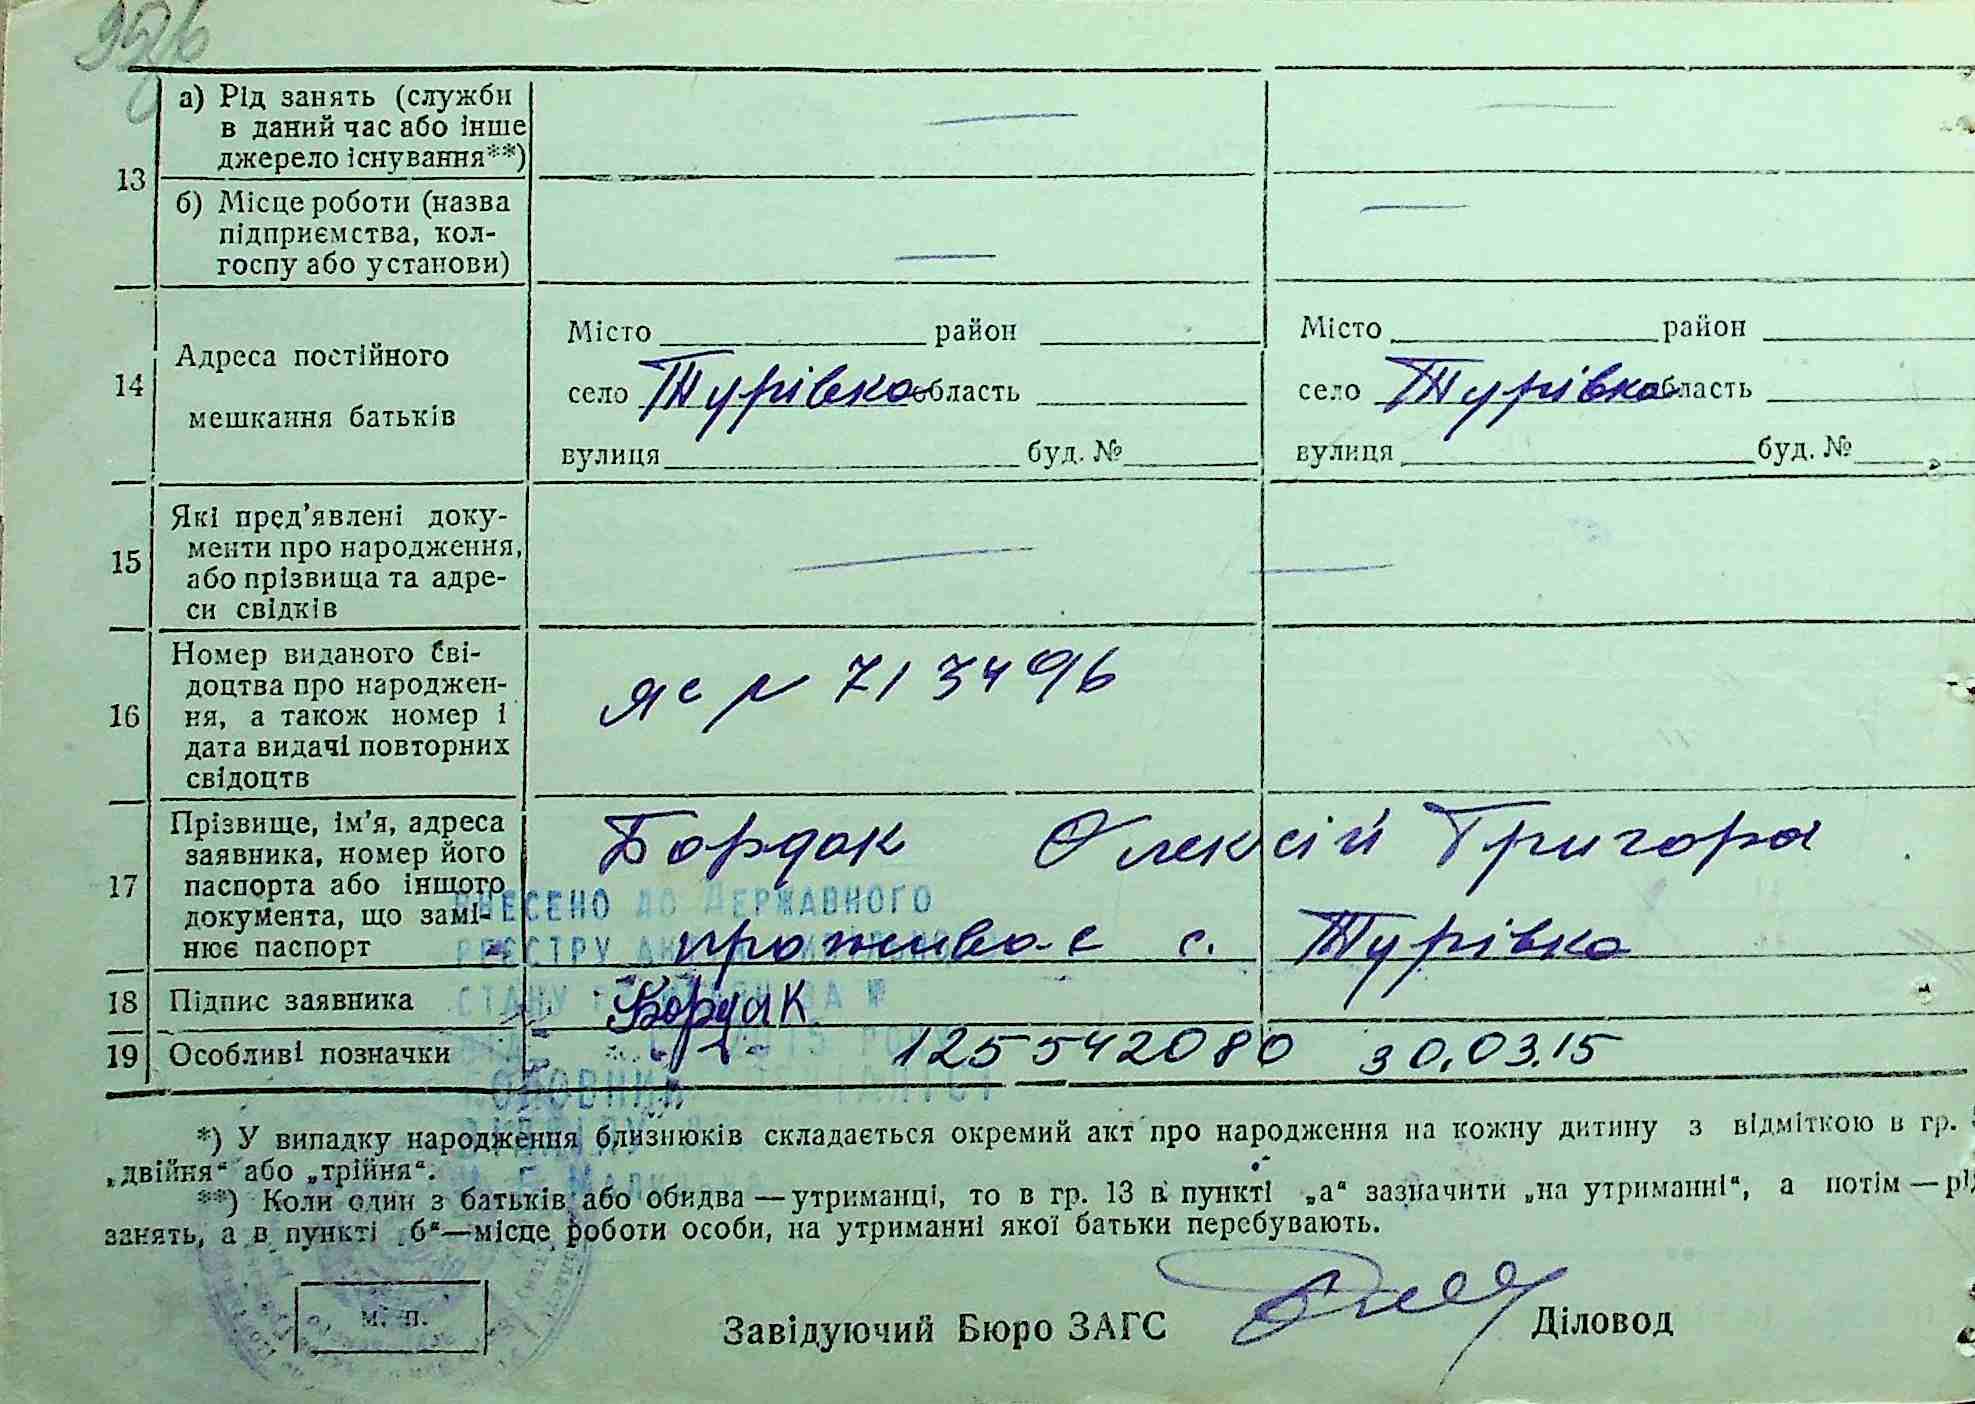 13
а) Рід занять (служби
в даний час або інше
джерело існування**)
—
—
б) Місце роботи (назва
підприємства, кол-
госпу або установи)
—
—
14
Адреса постійного
мешкання батьків
Місто район
село Турівка область
вулиця буд. №
Місто район
село Турівка область
вулиця буд. №
15
Які пред’явлені доку-
менти про народження,
або прізвища та адре-
си свідків
—
—
16
Номер виданого сві-
доцтва про народжен-
ня, а також номер і
дата видачі повторних
свідоцтв
яс № 713496
17
Прізвище, ім’я, адреса
заявника, номер його
паспорта або іншого
документа, що замі-
нює паспорт
Бордак Олексій Григора
проживає с. Турівка
18 Підпис заявника Бордак
19 Особливі позначки 125542080 30.03.15
ВНЕСЕНО ДО ДЕРЖАВНОГО
РЕЄСТРУ
СТАНУ
*) У випадку народження близнюків складається окремий акт про народження на кожну дитину з відміткою в гр.
„двійня“ або „трійня“.
**) Коли один з батьків або обидва — утриманці, то в гр. 13 в пункті „а“ зазначити „на утриманні“, а потім — рід
занять, а в пункті „б“—місце роботи особи, на утриманні якої батьки перебувають.
м. п.
Завідуючий Бюро ЗАГС Діловод